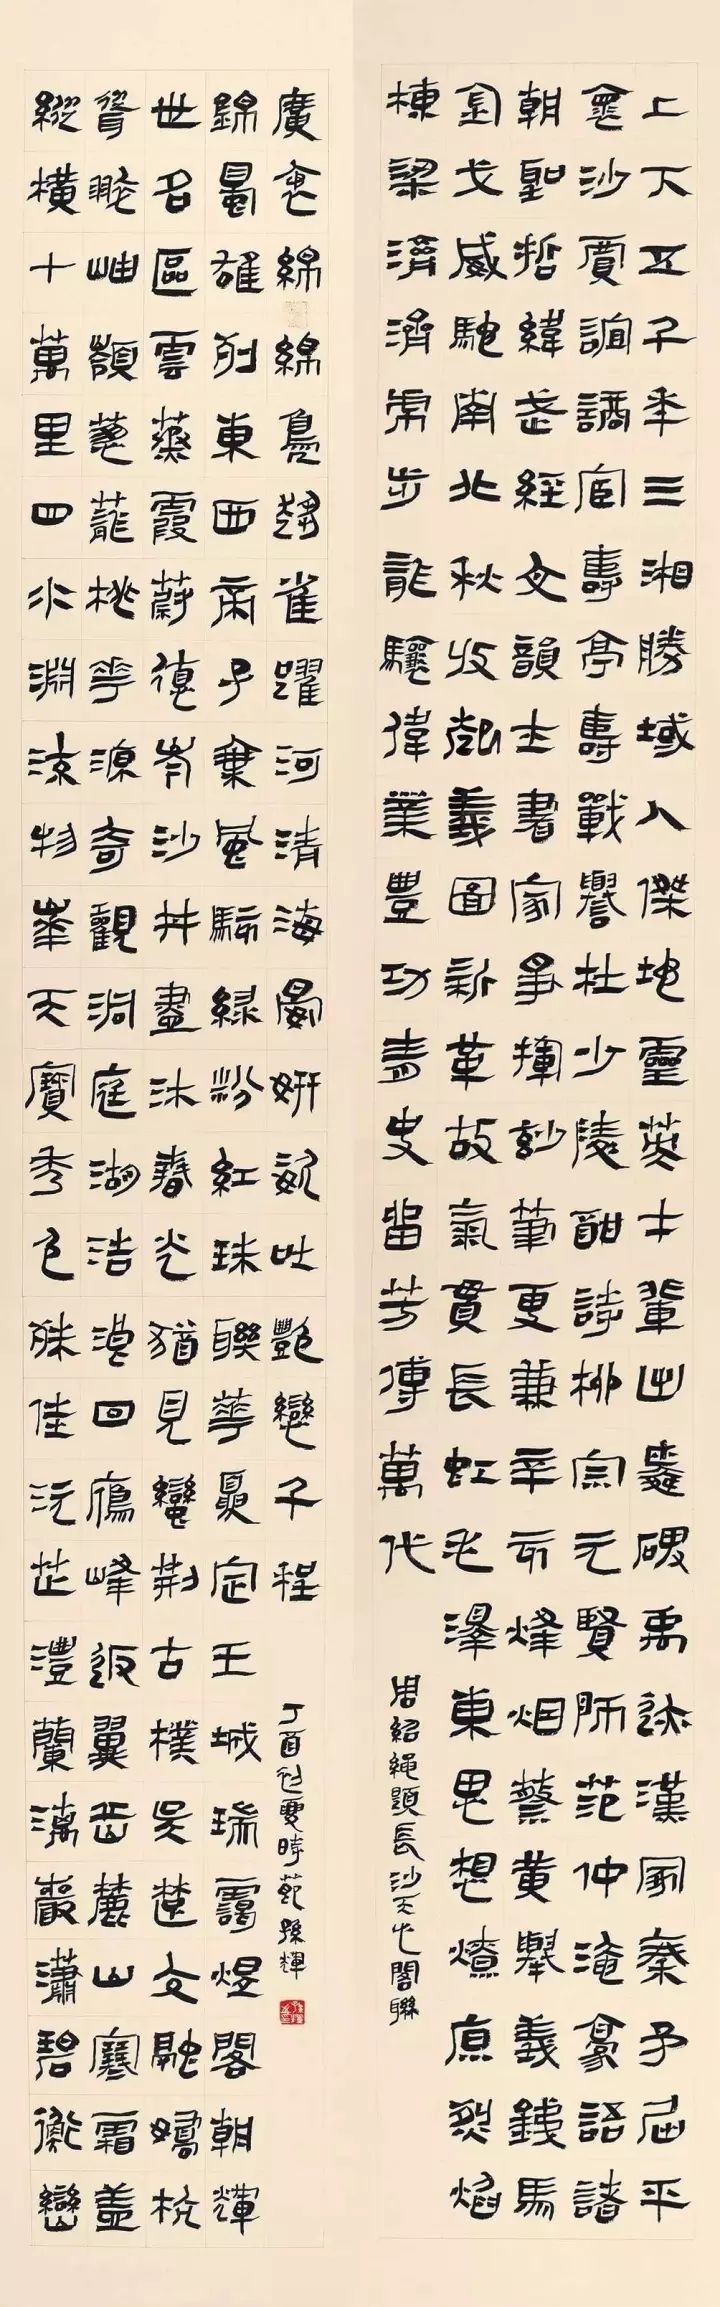 上下五千年三湘勝域人傑地靈英才輩出叢碑禹跡漢冢秦矛屈平
冤沙賈誼謫宦壽亭壽戰譽杜少陵酣詩柳宗元賢師范仲淹豪語諸
朝聖哲緯武經文韻士書家爭揮妙筆更兼辛亥烽烟蔡黃舉義錢馬
金戈威馳南北秋收起義圖新革故氣貫長虹毛澤東思想燎原烈焰
棟梁濟濟虎步龍驤偉業豐功青史留芳傳萬代
周紹繩題長沙天心閣聯
縱橫十萬里四水淵物華天寶秀色殊佳沅芷澧蘭漓巖瀟碧衡巒
聳岫嶺蔥蘢桃花源奇觀洞庭湖浩渺回雁峰返翼岳麓山寒霜蓋
世名區雲蒸霞蔚復岑沙井盡沐春光猶見蠻荊古樸吳楚交融嬌杭
錦蜀雄列東西帝子乘風綠粉紅珠聯華定王城瑞靄煜閣朝輝
廣袤綿綿鳧趨雀躍河清海晏妍姿吐艷變千程
丁酉之夏時苑孫輝